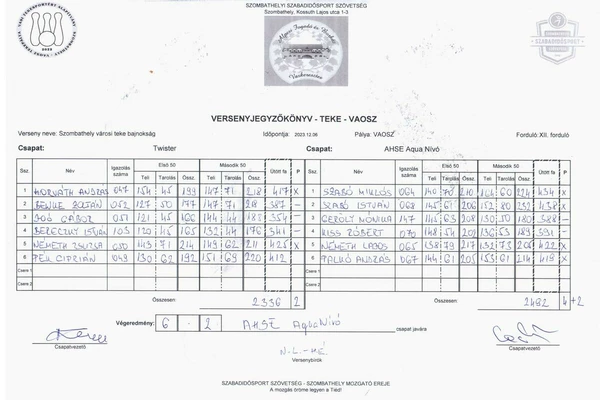 SZOMBATHELYI SZABADIDŐSPORT SZÖVETSÉG
Szombathely, Kossuth Lajos utca 1-3
VERSENYJEGYZŐKÖNYV - TEKE - VAOSZ
Verseny neve: Szombathely városi teke bajnokság Időpontja: 2023.12.06 Pálya: VAOSZ Forduló: XII. forduló
Csapat: Twister Csapat: AHSE Aqua Nívó
Ssz. Név Igazolás száma Első 50 Második 50 Ütött fa P Ssz. Név Igazolás száma Első 50 Második 50 Ütött fa P
Teli Tarolás ÖSSZ Teli Tarolás ÖSSZ Teli Tarolás ÖSSZ Teli Tarolás ÖSSZ
1 HORVÁTH ANDRÁS 047 154 45 199 147 71 218 417 X 1 SZABÓ MIKLÓS 064 140 70 210 164 60 224 434 X
2 BENKE ZOLTÁN 052 127 50 177 147 71 218 387 – 2 SZABÓ ISTVÁN 068 145 61 206 152 80 232 438 X
3 JOÓ GÁBOR 051 121 45 166 144 44 188 354 – 3 GERÖLY MÓNIKA 147 145 63 208 130 50 180 388 –
4 BERECZKY ISTVÁN 103 120 45 165 132 44 176 341 – 4 KISS RÓBERT 070 148 54 202 136 53 189 391 –
5 NÉMETH ZSUZSA 050 143 71 214 149 62 211 425 X 5 NÉMETH LAJOS 065 138 79 217 132 73 205 422 X
6 PÉM CIPRIÁN 049 130 62 192 151 69 220 412 6 PALKÓ ANDRÁS 067 144 61 205 153 61 214 419 X
Csere 1 Csere 1
Csere 2 Csere 2
Összesen: 2336 2 Összesen: 2492 4+2
Végeredmény: 6 - 2 AHSE AquaNívó csapat javára
Csapatvezető Csapatvezető
N.L.-MÉ
Versenybírók
SZABADIDŐSPORT SZÖVETSÉG - SZOMBATHELY MOZGATÓ EREJE
A mozgás öröme legyen a Tiéd!